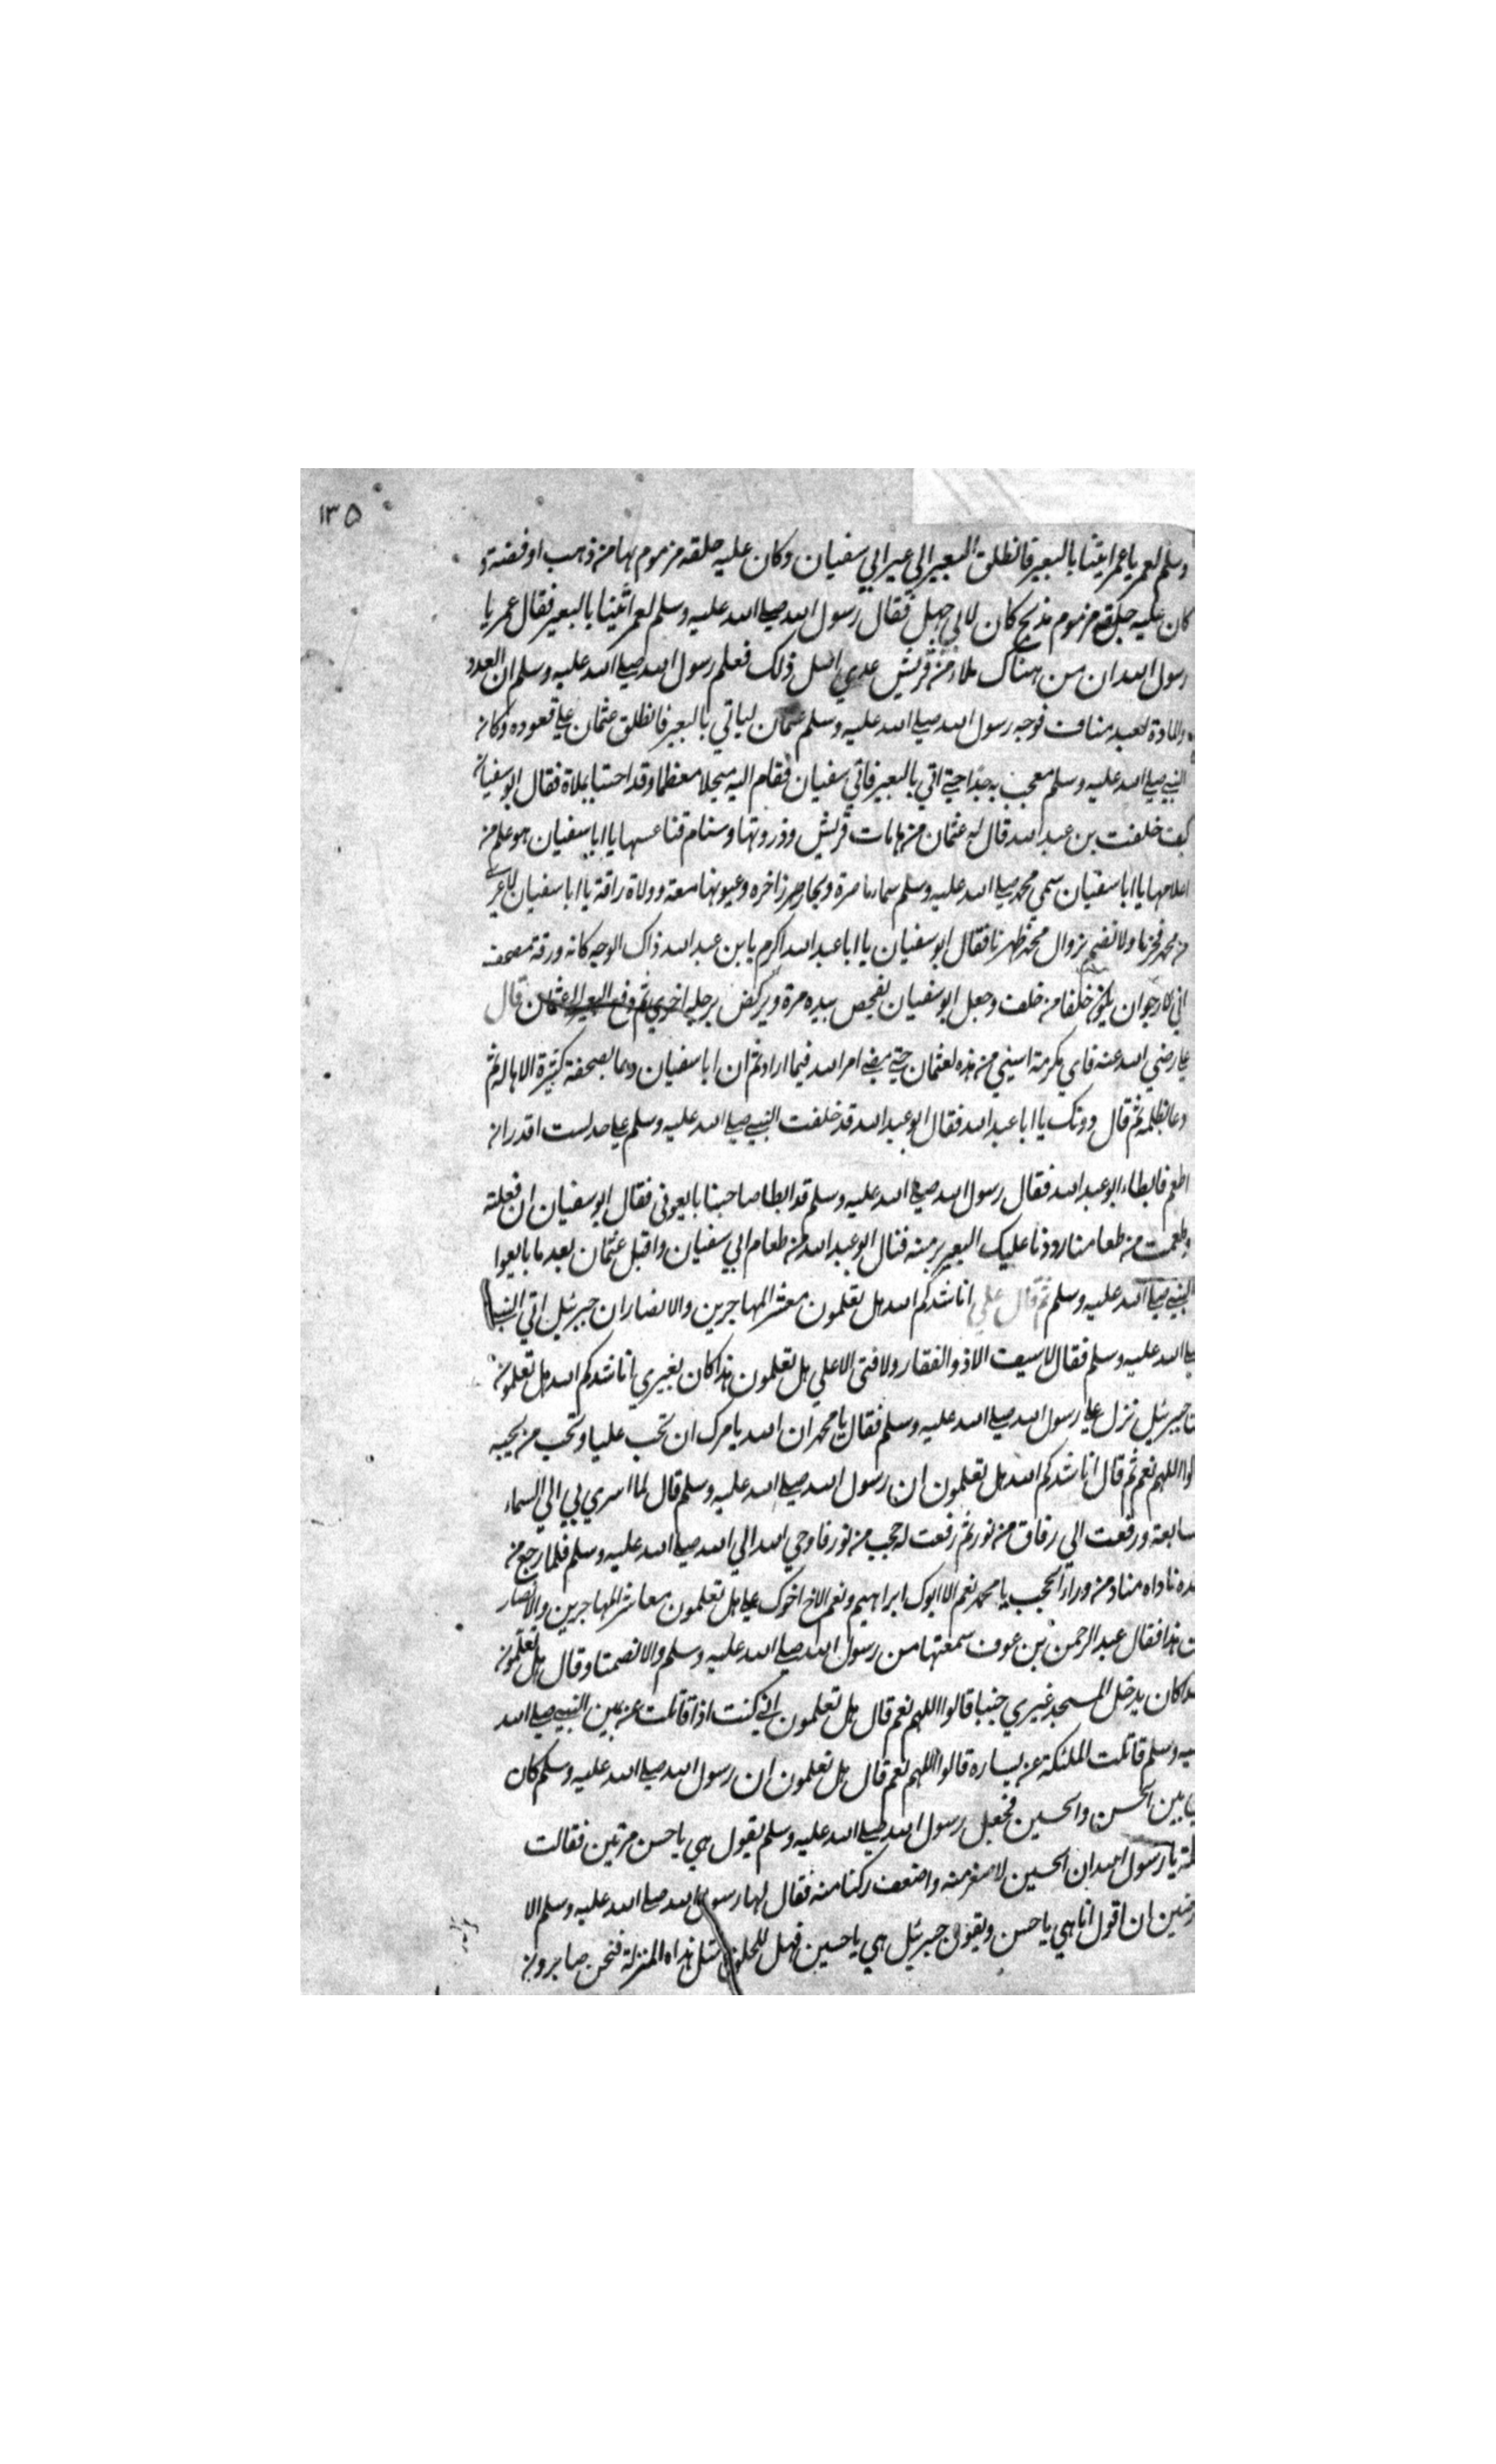 ١٣٥
وسلم لعمر يا عمر ايتنا بالبعير فانطلق البعير الي عير ابي سفيان وكان عليه حلقه مزموم بها من ذهب او فضة و
كان عليه جل مزموم مذبج كان لابي جهل فقال رسول الله صلي الله عليه وسلم لعمر ائتينا بالبعير فقال عمر يا
رسول الله ان من هناك ملاء من قريش عدي اسل ذلك فعلم رسول الله صلي الله عليه وسلم ان العدد
والمادة لعبد مناف فوجه رسول الله صلي الله عليه وسلم عثمان لياتي بالبعير فانطلق عثمان علي قعوده وكان
النبي صلي الله عليه وسلم معجب به جدا حتي اتي بالبعير فاتي سفيان فقام اليه مبجلا معظما وقد احتبا بملاة فقال ابو سفيان
كيف خلفت بن عبد الله قال له عثمان من هامات قريش وذروتها وسنام قناعسها يا ابا سفيان هو علم من
اعلامها يا ابا سفيان سمي محمد صلي الله عليه وسلم سماء ماصرة وبحار زاخره وعيونها معة وولاة راقة يا ابا سفيان
من محمد فخرنا ولا نضم بزوال محمد ظهرنا فقال ابو سفيان يا ابا عبد الله اكرم يا بن عبد الله ذاك الوجه كانه ورقة مصحف
اني لارجو ان يكون خلفا من خلف وجعل ابو سفيان يفحص بيده مرة ويركض برجله اخري ثم دفع البعير الي عثمان قال
علي رضي الله عنه فاي مكرمة اسني من هذه لعثمان حتي مضي امر الله فيما اراد ثم ان ابا سفيان دعا بصحفة كثيرة الاهاله ثم
دعا بظلمه ثم قال دونك يا ابا عبد الله فقال ابو عبد الله قد خلفت النبي صلي الله عليه وسلم علي حد لست اقدر ان
اطعم فابطاء ابو عبد الله فقال رسول الله صلي الله عليه وسلم قد ابطا صاحبنا بايعوني فقال ابو سفيان ان فعلته
وطعمت من طعامنا رددنا عليك البعير برمته فنال ابو عبد الله من طعام ابي سفيان واقبل عثمان بعد ما بايعوا
النبي صلي الله عليه وسلم ثم قال علي انا شدكم الله هل تعلمون معشر المهاجرين والانصار ان جبرئيل اتي النبي
صلي الله عليه وسلم فقال لا سيف الا ذو الفقار ولا فتي الا علي هل تعلمون هذا كان لغيري انا شدكم الله هل تعلمون
جبرئيل نزل علي رسول الله صلي الله عليه وسلم فقال يا محمد ان الله يامرك ان تحب عليا وتحب من يحبه
قالوا اللهم نعم ثم قال انا شدكم الله هل تعلمون ان رسول الله صلي الله عليه وسلم قال لما اسري بي الي السماء
سابعة ورفعت الي رفاق من نور ثم رفعت له حجب من نور فاوحي الله الي الله صلي الله عليه وسلم فلما رجع من
عنده ناداه مناد من وراء الحجب يا محمد نعم الا ابوك ابراهيم ونعم الاخ اخوك علي هل تعلمون معاشر المهاجرين والانصار
هذا فقال عبد الرحمن بن عوف سمعتها من رسول الله صلي الله عليه وسلم والا نصمتا وقال هل تعلمون
احدا كان يدخل المسجد غيري جنبا قالوا اللهم نعم قال هل تعلمون اني كنت اذا قاتلت عن يمين النبي صلي الله
عليه وسلم قاتلت الملئكة عن يساره قالوا اللهم نعم قال هل تعلمون ان رسول الله صلي الله عليه وسلم كان
بين الحسن والحسين فجعل رسول الله صلي الله عليه وسلم يقول هي يا حسن مرتين فقالت
فاطمة يا رسول الله ان الحسين لاصغر منه واضعف ركنا منه فقال لها رسول الله صلي الله عليه وسلم الا
ترضين ان اقول انا هي يا حسن ويقول جبرئيل هي يا حسين فهل للخلق مثل هذاه المنزلة فنحن صابرون